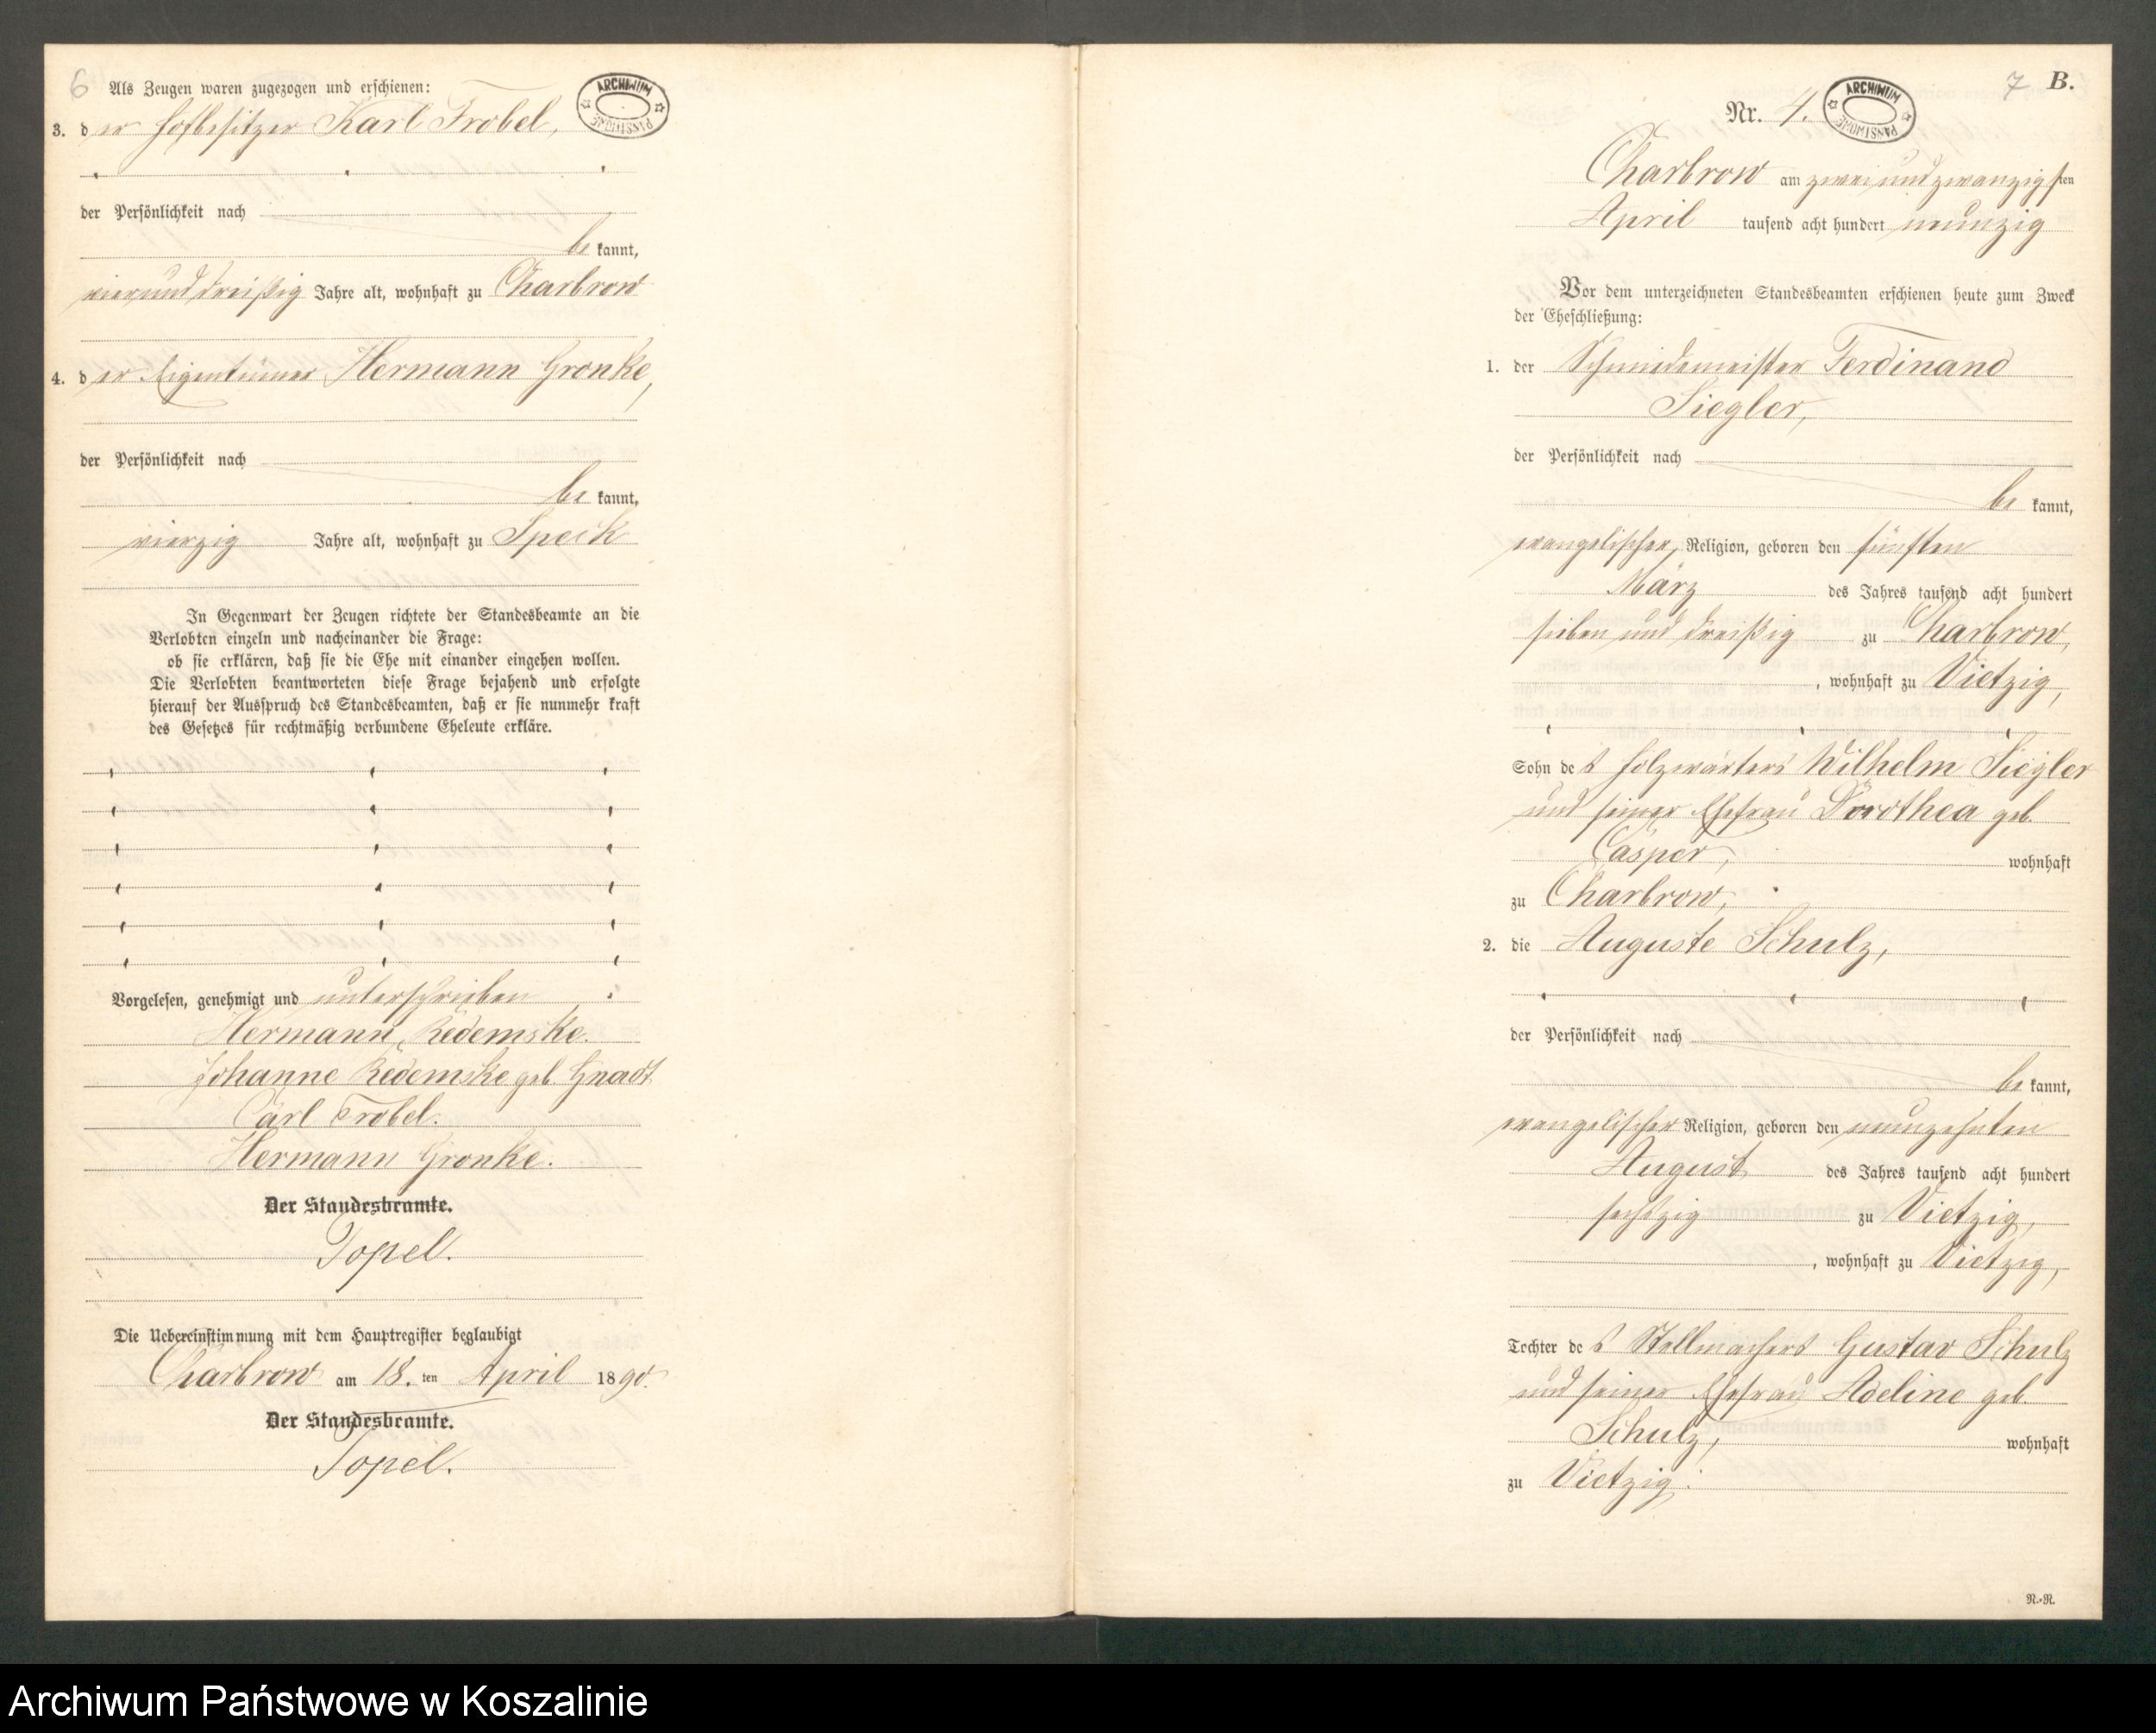 6 Als Zeugen waren zugezogen und erschienen:
ARCHIWUM PAŃSTWOWE
3. der Hofbesitzer Karl Trobel,
der Persönlichkeit nach
be kannt,
vierunddreißig Jahre alt, wohnhaft zu Charbrow
4. der Eigentümer Hermann Gronke,
der Persönlichkeit nach
be kannt,
vierzig Jahre alt, wohnhaft zu Speck
In Gegenwart der Zeugen richtete der Standesbeamte an die
Verlobten einzeln und nacheinander die Frage:
ob sie erklären, daß sie die Ehe mit einander eingehen wollen.
Die Verlobten beantworteten diese Frage bejahend und erfolgte
hierauf der Ausspruch des Standesbeamten, daß er sie nunmehr kraft
des Gesetzes für rechtmäßig verbundene Eheleute erkläre.
Vorgelesen, genehmigt und unterschrieben
Hermann Redemske.
Johanne Redemske geb. Gnadt
Carl Trobel.
Hermann Gronke.
Der Standesbeamte.
Topel.
Die Uebereinstimmung mit dem Hauptregister beglaubigt
Charbrow am 18. ten April 1890.
Der Standesbeamte.
Topel.
7 B.
Nr. 4.
ARCHIWUM PAŃSTWOWE
Charbrow am zwei und zwanzigsten
April tausend acht hundert neunzig
Vor dem unterzeichneten Standesbeamten erschienen heute zum Zweck
der Eheschließung:
1. der Schmiedemeister Ferdinand
Siegler,
der Persönlichkeit nach
be kannt,
evangelischer Religion, geboren den fünften
März des Jahres tausend acht hundert
sieben und dreißig zu Charbrow,
, wohnhaft zu Vietzig,
Sohn des Holzwärters Wilhelm Siegler
und seiner Ehefrau Dorothea geb.
Casper, wohnhaft
zu Charbrow,
2. die Auguste Schulz,
der Persönlichkeit nach
be kannt,
evangelischer Religion, geboren den neunzehnten
August des Jahres tausend acht hundert
sechszig zu Vietzig,
, wohnhaft zu Vietzig,
Tochter des Stellmachers Gustav Schulz
und seiner Ehefrau Adeline geb.
Schulz, wohnhaft
zu Vietzig.
N.-N.
Archiwum Państwowe w Koszalinie